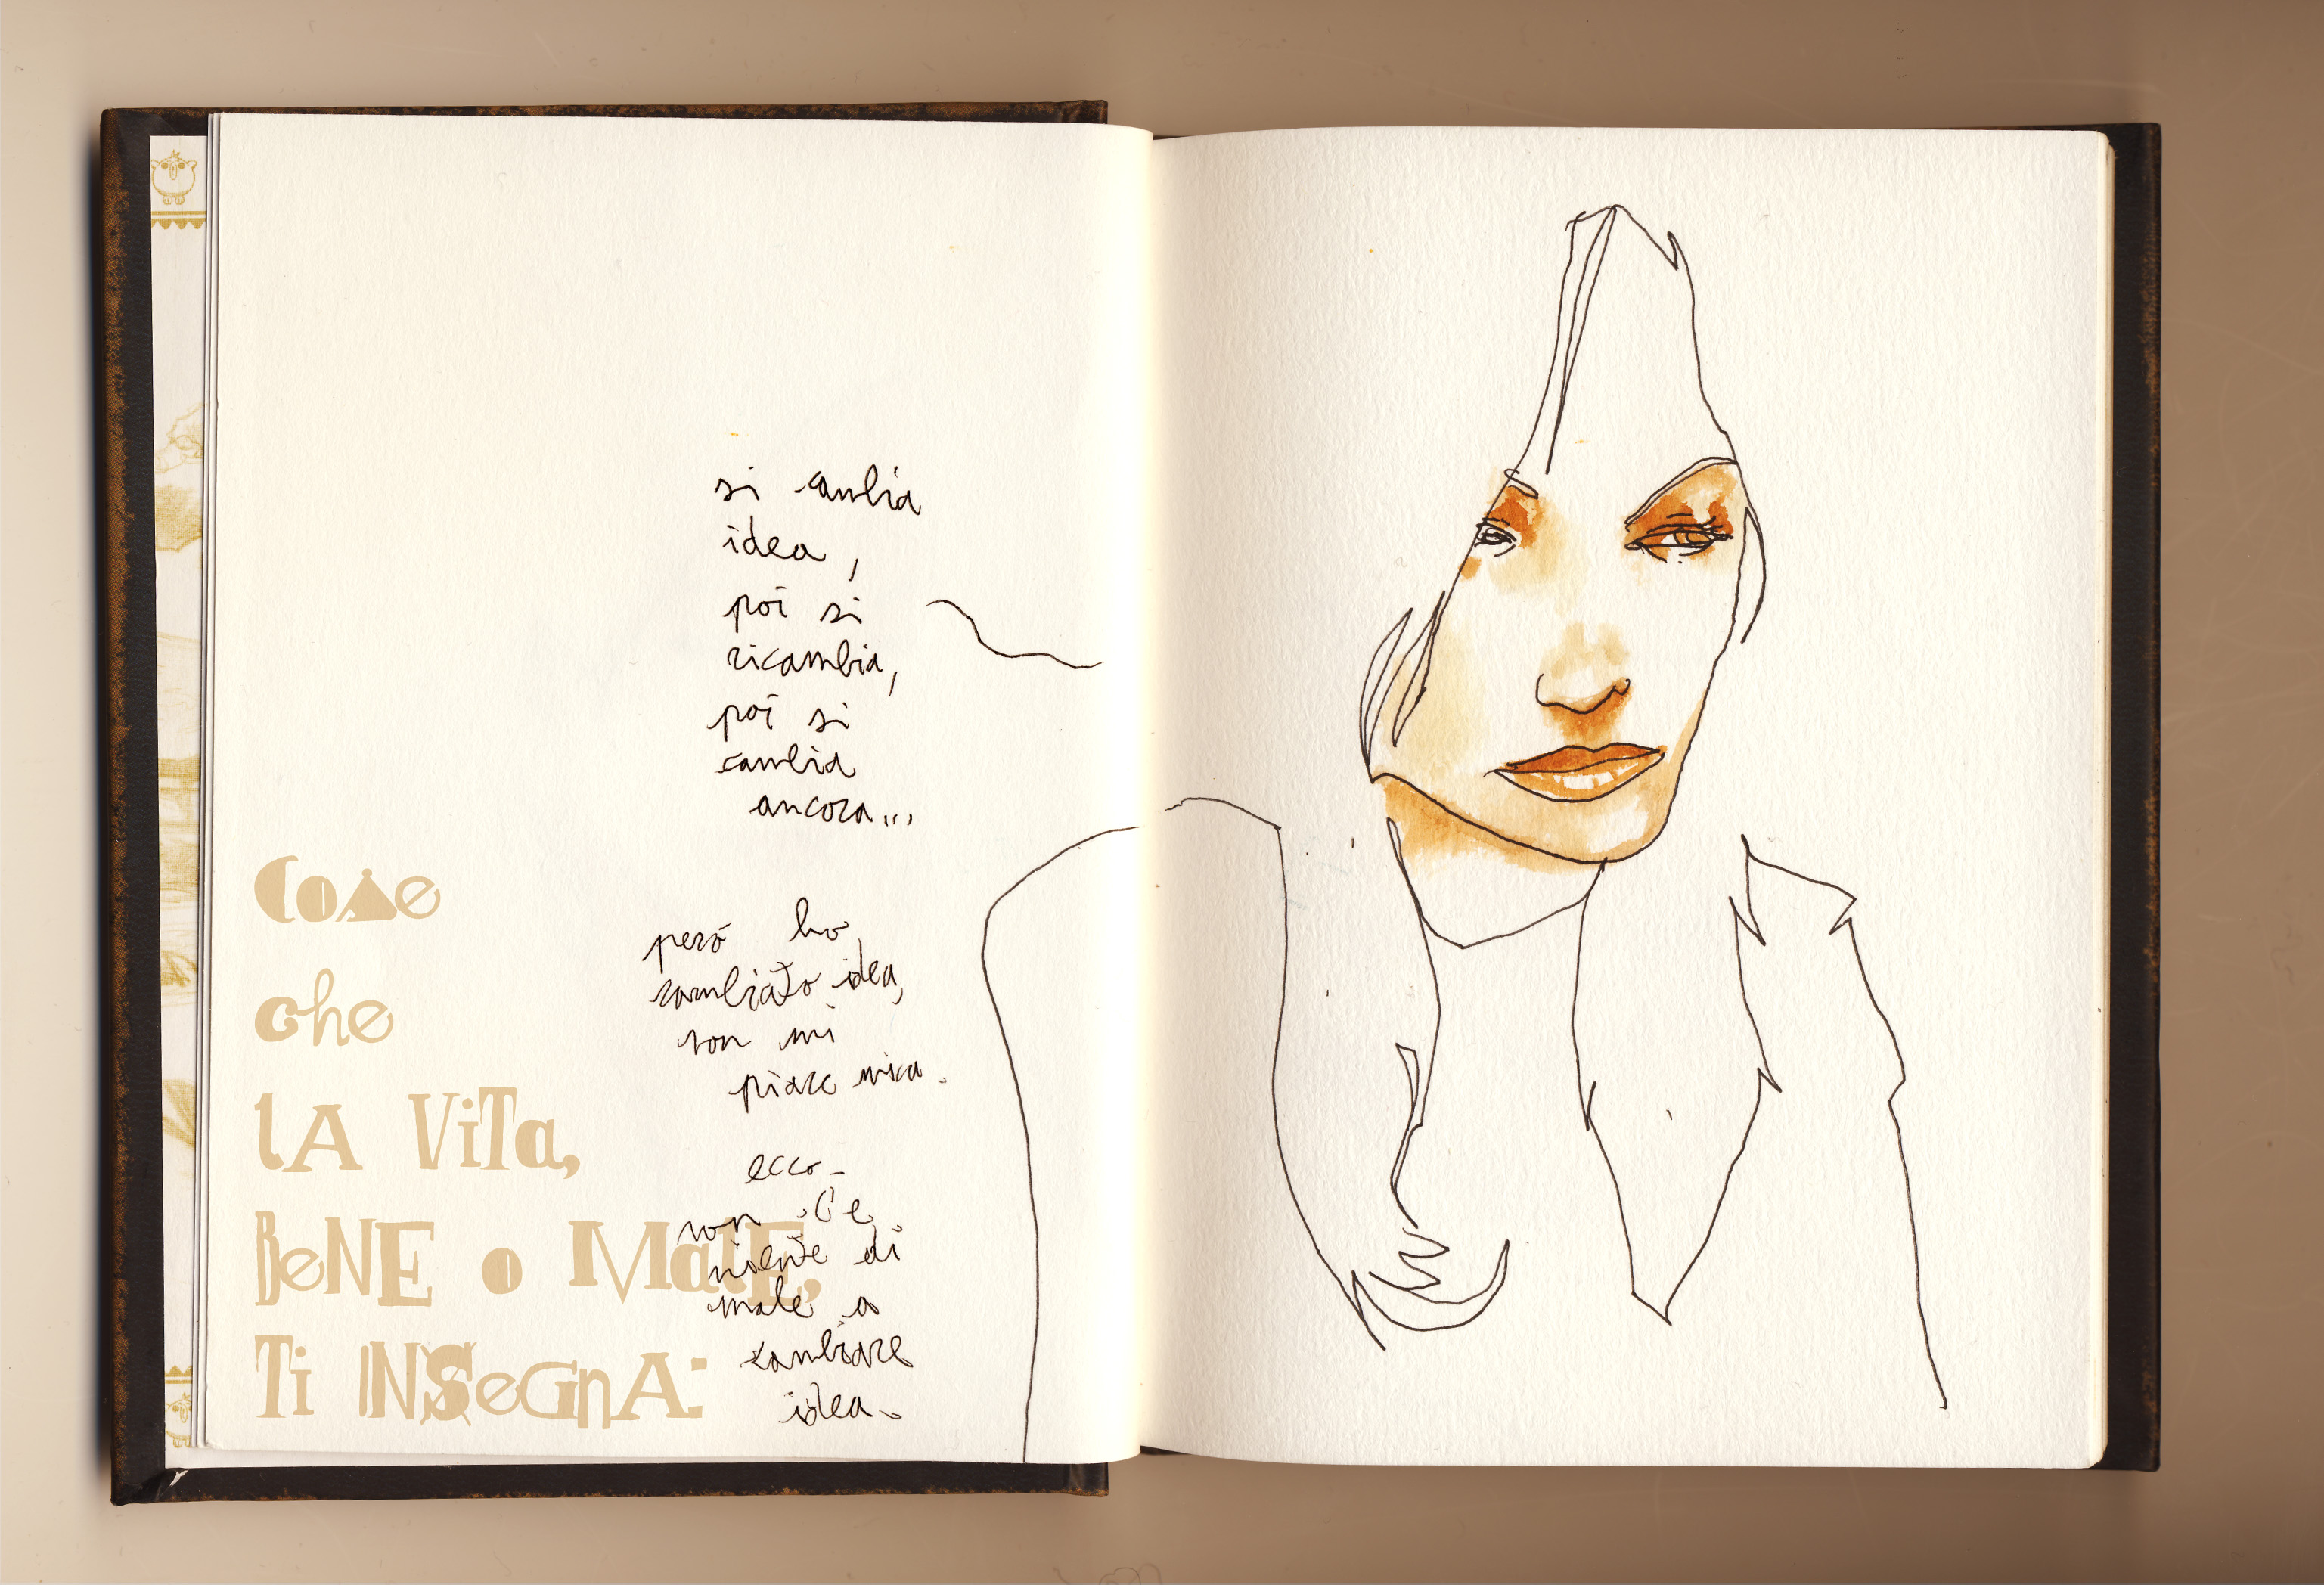 Cose
che
lA ViTa,
BeNE o MalE,
Ti INSeGnA:
si cambia
idea,
poi si
ricambia,
poi si
cambia
ancora...
però ho
cambiato idea,
non mi
piace mica.
ecco.
non c'è
niente di
male a
cambiare
idea.